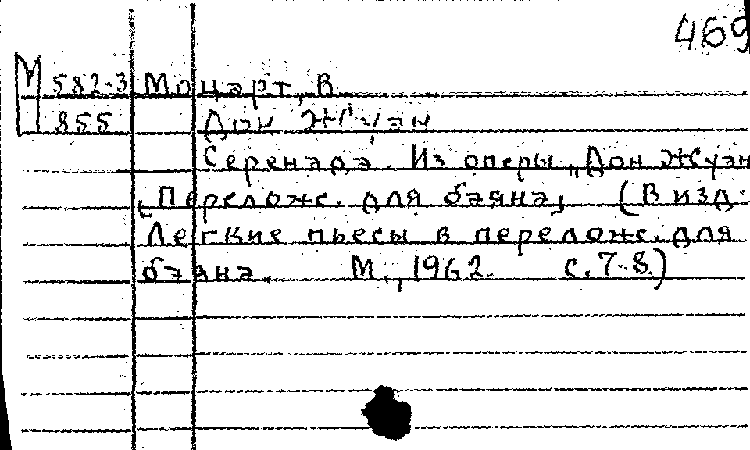 469
М 582-3 Моцарт, В.
855 Дон Жуан
Серенада. Из оперы „Дон Жуан
[Перелож. для баяна] (В изд:
Легкие пьесы в перелож. для
баяна. М., 1962. с. 7-8)